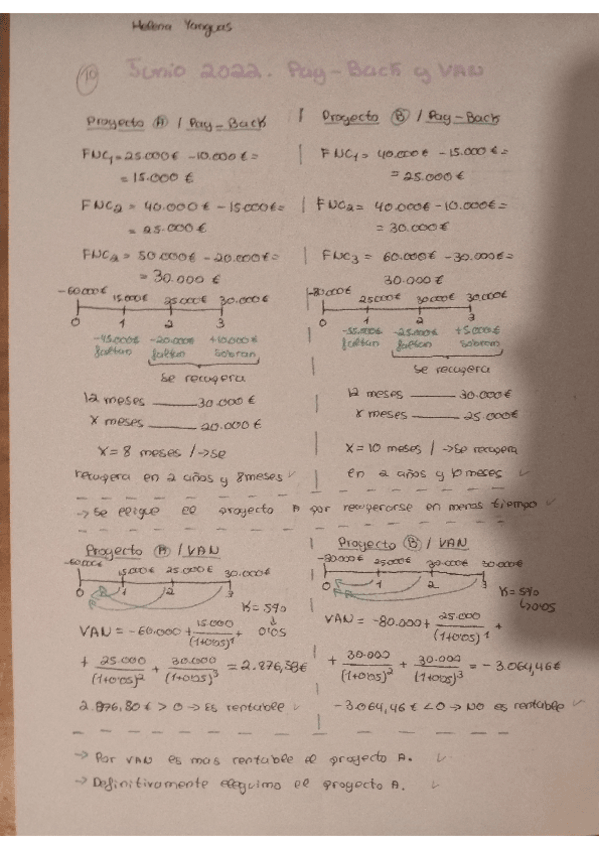 Helena Yanguas
10 Junio 2022. Pay-Back y VAN
Proyecto A / Pay-Back
FNC1 = 25.000€ - 10.000€ =
= 15.000 €
FNC2 = 40.000€ - 15000€ =
= 25.000 €
FNC2 = 50.000€ - 20.000€ =
= 30.000 €
-60.000€ 15.000€ 25.000€ 30.000€
0 1 2 3
-45.000€ -20.000€ +10.000€
faltan faltan sobran
Se recupera
12 meses 30.000€
x meses 20.000€
x = 8 meses / → Se
recupera en 2 años y 8 meses ✓
Proyecto B / Pay-Back
FNC1 = 40.000€ - 15.000€ =
= 25.000€
FNC2 = 40.000€ - 10.000€ =
= 30.000€
FNC3 = 60.000€ - 30.000€ =
30.000€
-80.000€ 25.000€ 30.000€ 30.000€
0 1 2 3
-55.000€ -25.000€ +5.000€
faltan faltan sobran
Se recupera
12 meses 30.000€
x meses 25.000€
x = 10 meses / → Se recupera
en 2 años y 10 meses ✓
→ Se elige el proyecto A por recuperarse en menos tiempo ✓
Proyecto A / VAN
-60.000€ 15.000€ 25.000€ 30.000€
0 1 2 3
K = 5%
↓
0'05
VAN = -60.000 + 15.000/(1+0'05)^1 +
+ 25.000/(1+0'05)^2 + 30.000/(1+0'05)^3 = 2.876,58€
2.876,80€ > 0 → Es rentable ✓
Proyecto B / VAN
-80.000€ 25.000€ 30.000€ 30.000€
0 1 2 3
K = 5%
↳ 0'05
VAN = -80.000 + 25.000/(1+0'05)^1 +
+ 30.000/(1+0'05)^2 + 30.000/(1+0'05)^3 = -3.064,46€
-3.064,46€ < 0 → NO es rentable ✓
→ Por VAN es mas rentable el proyecto A. ✓
→ Definitivamente elegimo el proyecto A. ✓